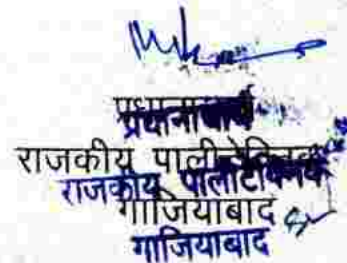 प्रधानाचार्य
प्रधानाचार्य
राजकीय पालीटेक्निक
राजकीय पालीटेक्निक
गाजियाबाद
गाजियाबाद